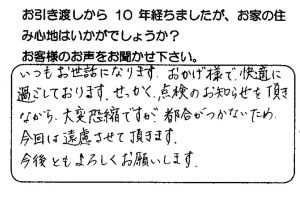 お引き渡しから 10 年経ちましたが、お家の住
み心地はいかがでしょうか?
お客様のお声をお聞かせ下さい。
いつもお世話になります。おかげ様で、快適に
過ごしております。せっかく、点検のお知らせを頂き
ながら、大変恐縮ですが、都合がつかないため、
今回は遠慮させて頂きます。
今後ともよろしくお願いします。